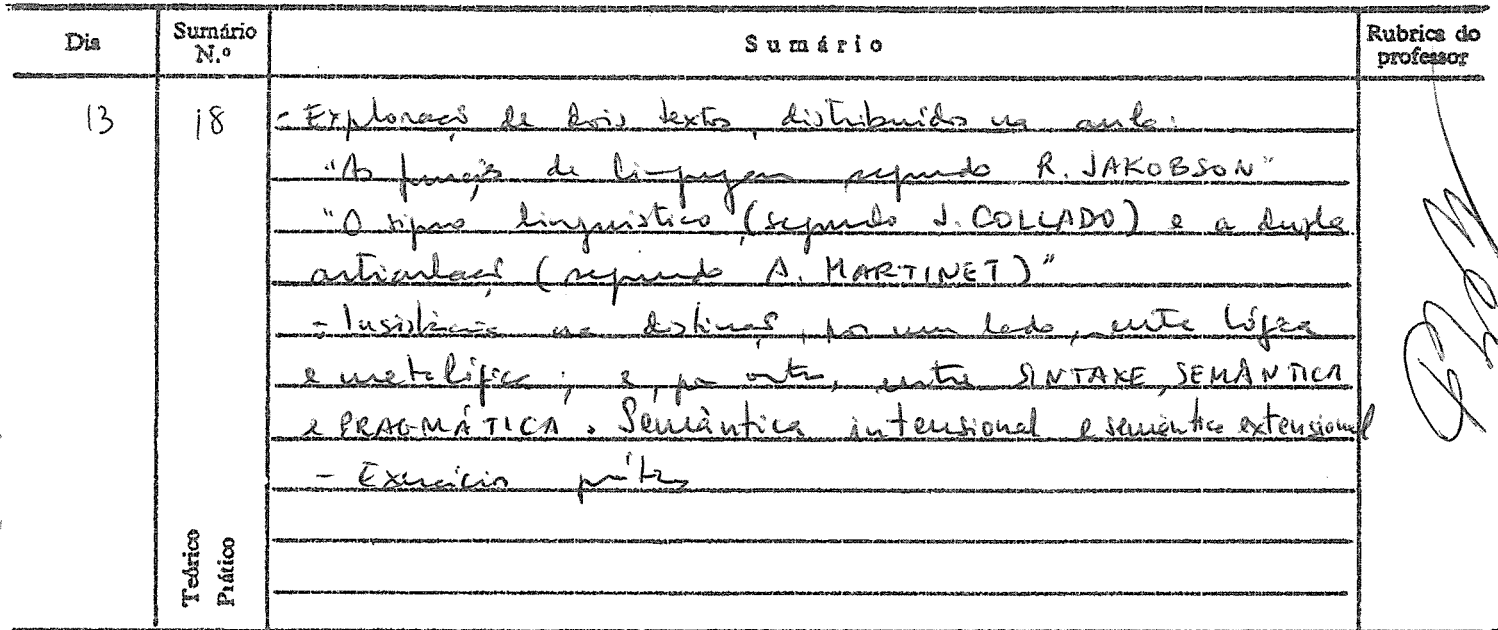 Dia
Sumário N.º
Sumário
Rubrica do professor
13
18
- Exploração de dois textos, distribuídos na aula:
"As funções da linguagem segundo R. JAKOBSON"
"O signo linguístico (segundo J. COLLADO) e a dupla
articulação (segundo A. MARTINET)"
- Insistência na distinção, por um lado, entre lógica
e metalógica; e, por outro, entre SINTAXE, SEMÂNTICA
e PRAGMÁTICA. Semântica intensional e semântica extensional
- Exercícios práticos
Teórico
Prático